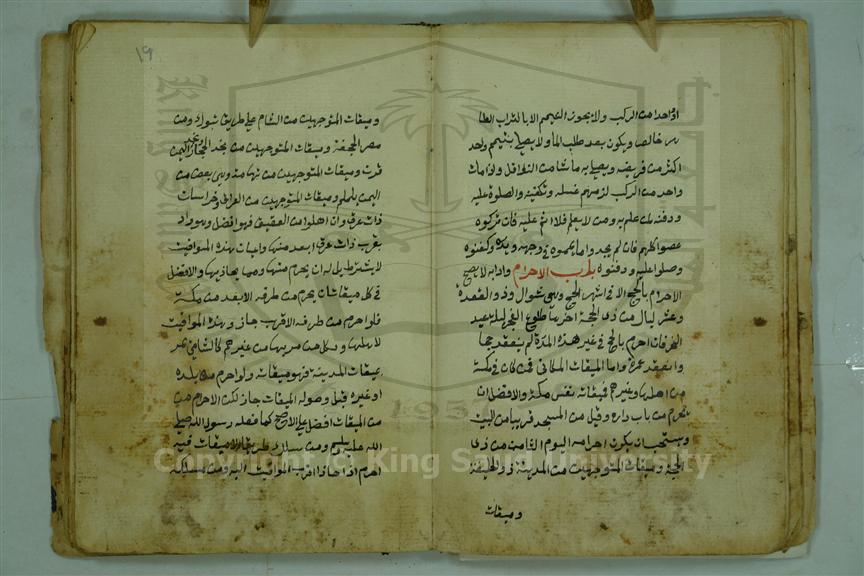 او احد من الركب ولا يجوز التيمم الا بالتراب الطا
هر خالص ويكون بعد طلب الماء ولا يصلي بتيمم واحد
اكثر من فريضة ويصلي به ما شا من النوافل ولو مات
واحد من الركب لزمهم غسله وتكفينه والصلوة عليه
ودفنه لمن علم به ومن لا يعلم فلا اثم عليه فان تركوه
عصوا كلهم فان لم يجدوا ماء يمموه في وجهه ويديه وكفنوه
وصلوا عليه ودفنوه باب الاحرام وادابه لا يصح
الاحرام بالحج الا في اشهر الحج وهي شوال وذو القعدة
وعشر ليال من ذي الحجة اخرها طلوع الفجر ليلة عيد
النحر فان احرم بالحج في غير هذه المدة لم ينعقد حجا
وانعقد عمرة واما الميقات المكاني فمن كان في مكة
من اهلها وغيرهم فميقاته نفس مكة والافضل ان
يحرم من باب داره وقيل من المسجد قريبا من البيت
ويستحب ان يكون احرامه اليوم الثامن من ذي
الحجة وميقات المتوجهين من المدينة ذو الحليفة
وميقات
١٩
وميقات المتوجهين من الشام على طريق تبوك ومن
مصر الجحفة وميقات المتوجهين من نجد الحجاز ونجد اليمن
قرن وميقات المتوجهين من تهامة وهي بعض من
اليمن يلملم وميقات المتوجهين من العراق وخراسان
ذات عرق وان اهلوا من العقيق فهو افضل وهو واد
بقرب ذات عرق ابعد منها واعيان هذه المواقيت
لا يشترط بل له ان يحرم منها ومما يحاذيها والافضل
في كل ميقات ان يحرم من طرفه الابعد من مكة
فلو احرم من طرفه الاقرب جاز وهذه المواقيت
لاهلها ولكل من مر بها من غيرهم كالشامي يمر
بميقات المدينة فهو ميقاته ولو احرم من بلده
او غيره قبل وصوله الميقات جاز لكن الاحرام من
من الميقات افضل على الاصح كما فعله رسول الله صلى
الله عليه وسلم ومن سلك طريقا لا ميقات فيه
احرم اذا حاذا اقرب المواقيت اليه ومن مسكنه
Copyright © King Saud University
1957